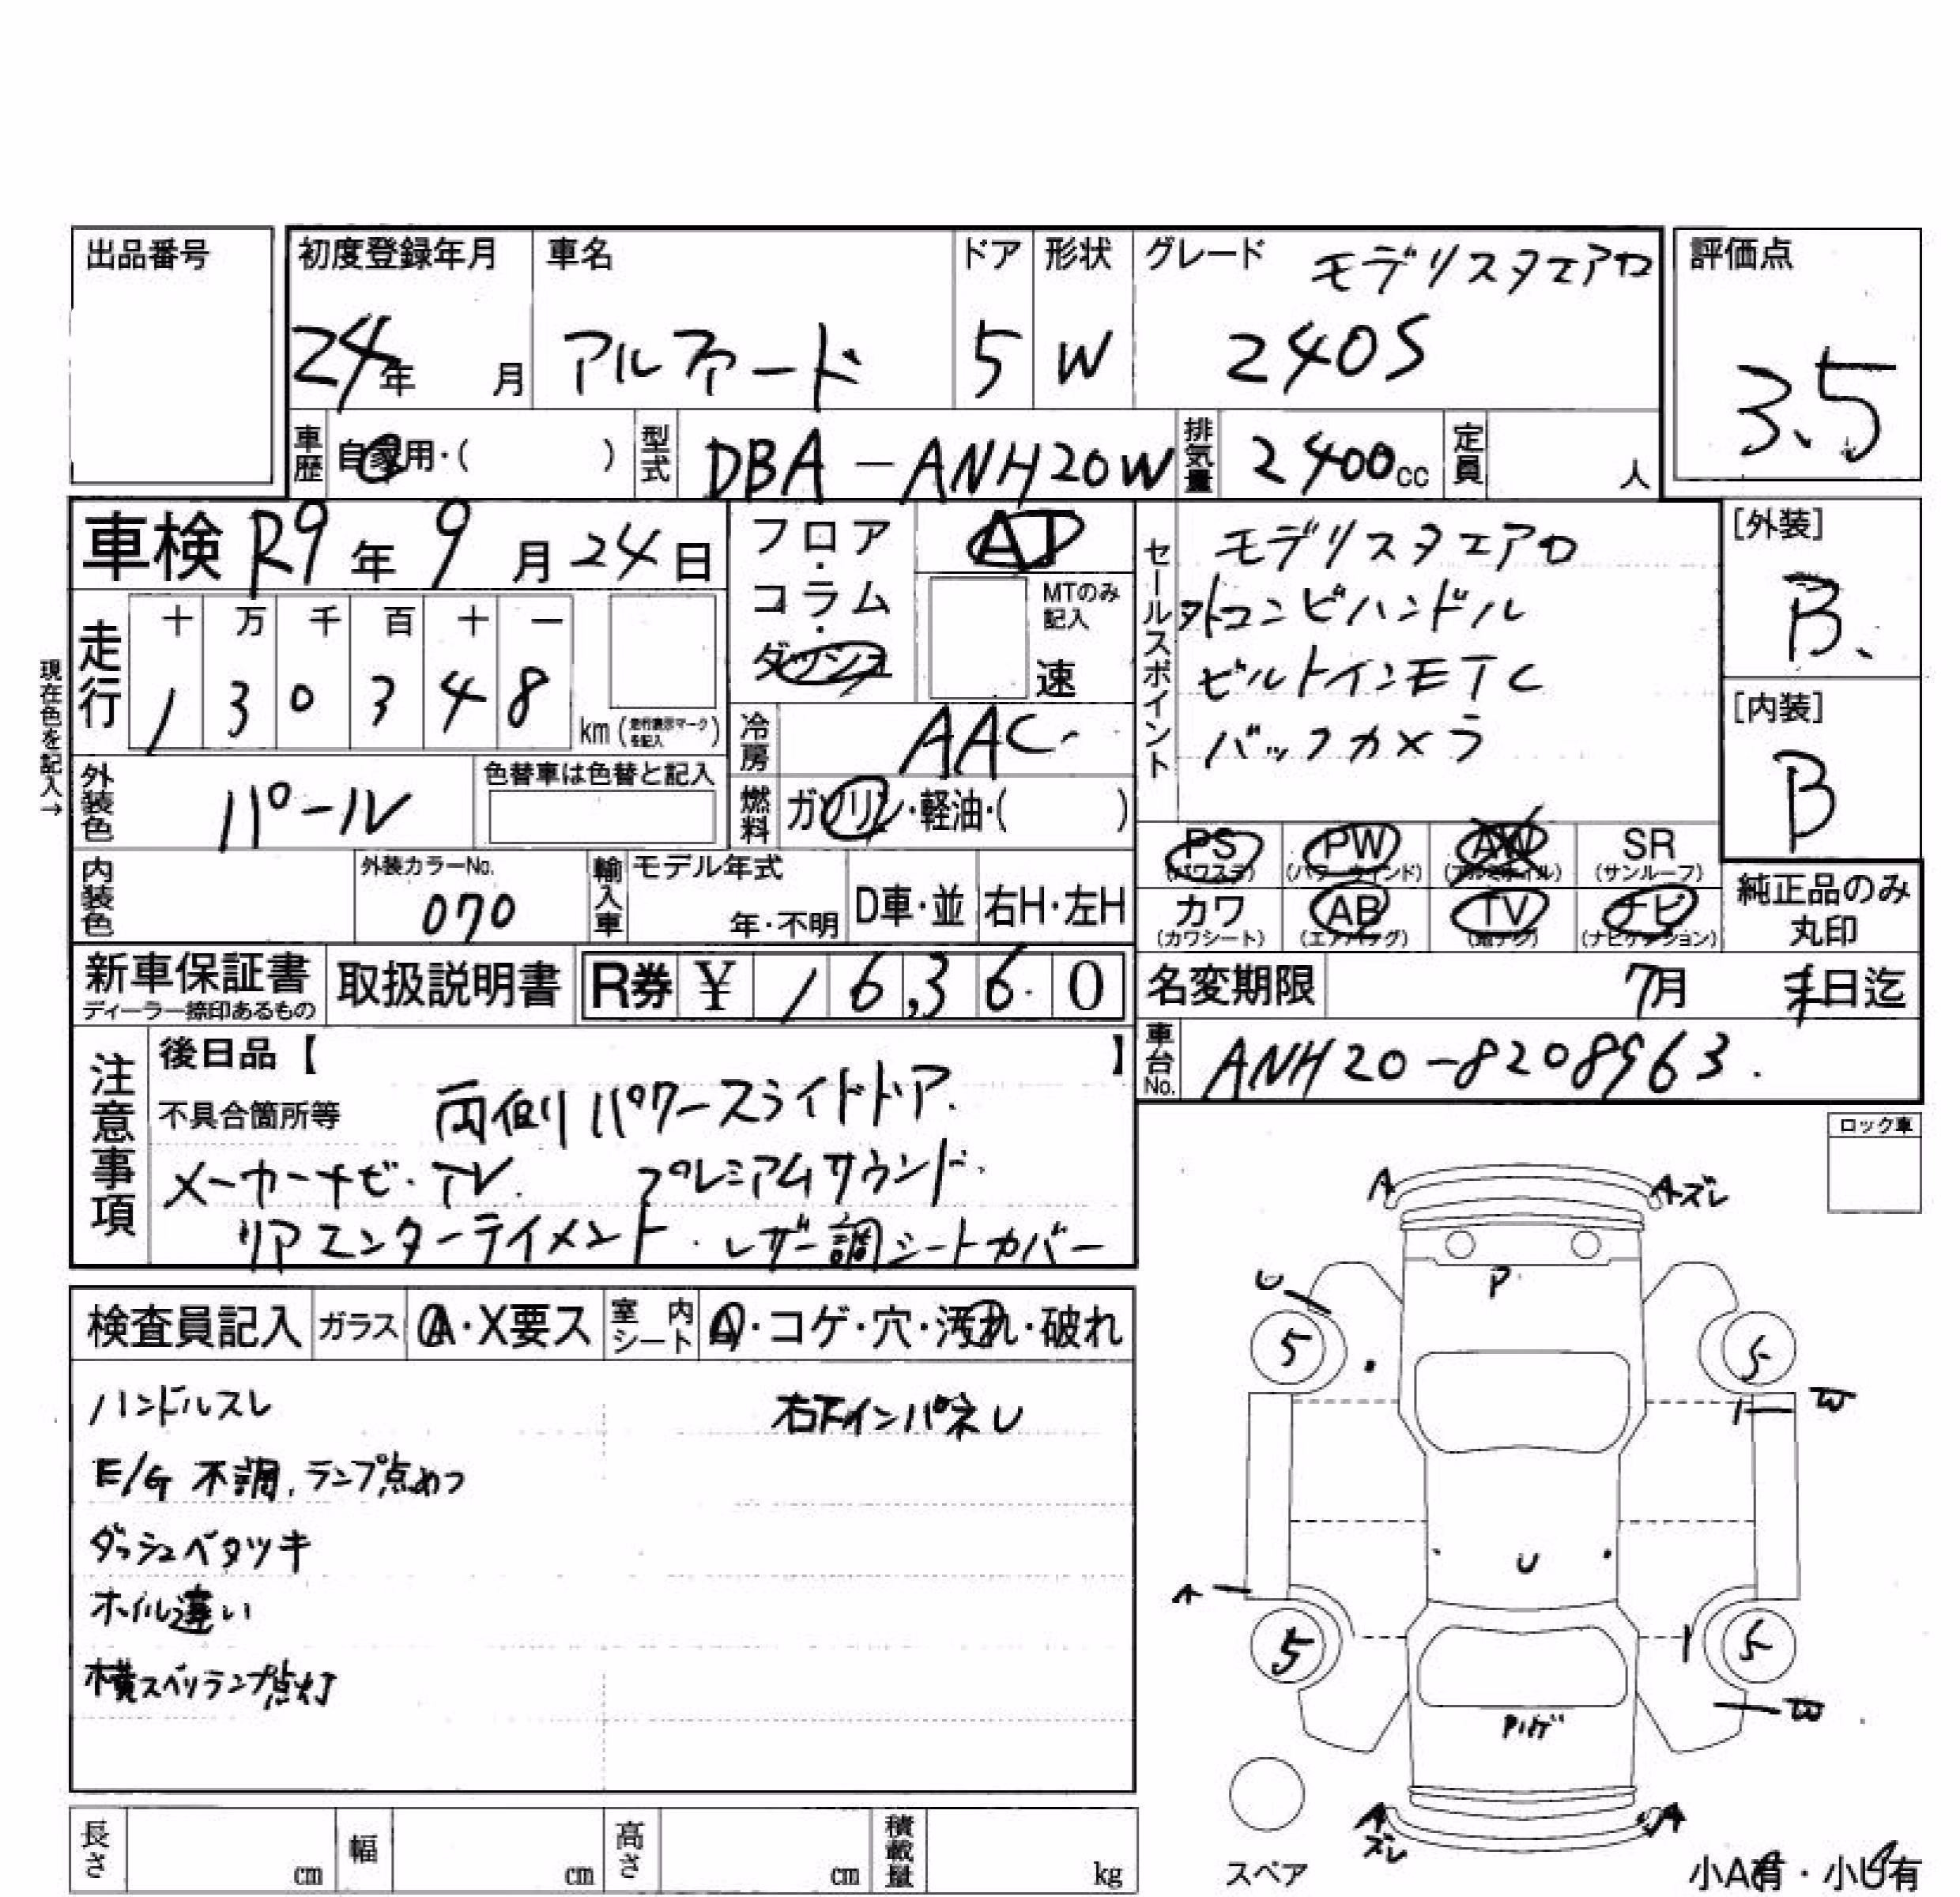 出品番号
初度登録年月 車名 ドア 形状 グレード モデリスタエアロ 評価点
24年 月 アルファード 5 W 240S 3.5
車歴 自家用・( ) 型式 DBA-ANH20W 排気量 2400cc 定員 人
車検 R9年 9月 24日 フロア・コラム・ダッシュ AT
MTのみ記入 速
セールスポイント
モデリスタエアロ
コンビハンドル
ビルトインETC
バックカメラ
[外装] B.
[内装] B
現在色を記入→
走行 十 万 千 百 十 一
1 3 0 3 4 8 km(走行表示マークを記入)
冷房 AAC
外装色 パール 色替車は色替と記入
燃料 ガソリン・軽油・( )
PS (パワステ) PW (パワーウインド) AW (アルミホイル) SR (サンルーフ)
カワ (カワシート) AB (エアバッグ) TV (地デジ) ナビ (ナビゲーション)
純正品のみ丸印
内装色 外装カラーNo. 070 輸入車 モデル年式 年・不明 D車・並 右H・左H
新車保証書 ディーラー捺印あるもの 取扱説明書 R券 ¥ 16,360
名変期限 7月 末日迄
車台No. ANH20-8208963.
注意事項 後日品【 】
不具合箇所等 両側パワースライドドア.
メーカーナビ・TV. プレミアムサウンド.
リアエンターテイメント. レザー調シートカバー
検査員記入 ガラス A・X要ス 室内シート A・コゲ・穴・汚れ・破れ
ハンドルスレ 右下インパネレ
E/G 不調.ランプ点めつ
ダッシュベタツキ
ホイル違い
横スベリランプ点灯
ロック車
A Aズレ
P
U
5 5
W
U
A
5 5
W
Pハゲ
A A
ズレ
スペア
小A有・小U有
長さ cm 幅 cm 高さ cm 積載量 kg